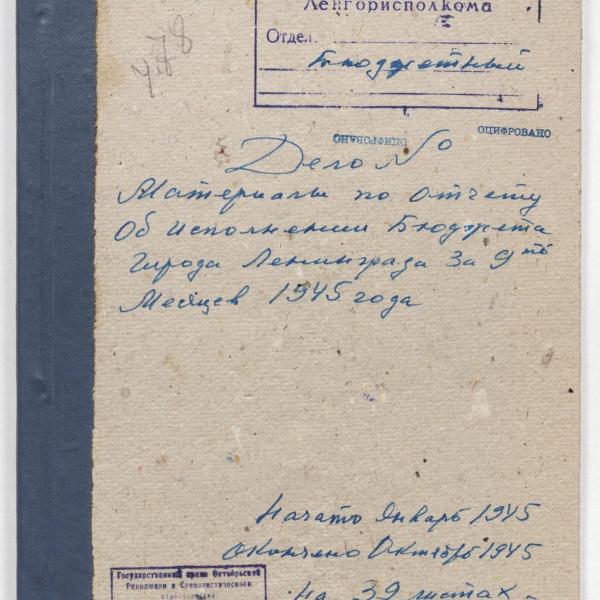 478
Ленгорисполкома
Отдел
Бюджетный
ОЦИФРОВАНО
ОЦИФРОВАНО
Дело №
Материалы по отчету
Об исполнении Бюджета
города Ленинграда за 9ть
Месяцев 1945 года
Начато Январь 1945
Окончено Октябрь 1945
На 39 листах -
Государственный архив Октябрьской
Революции и Социалистического
строительства